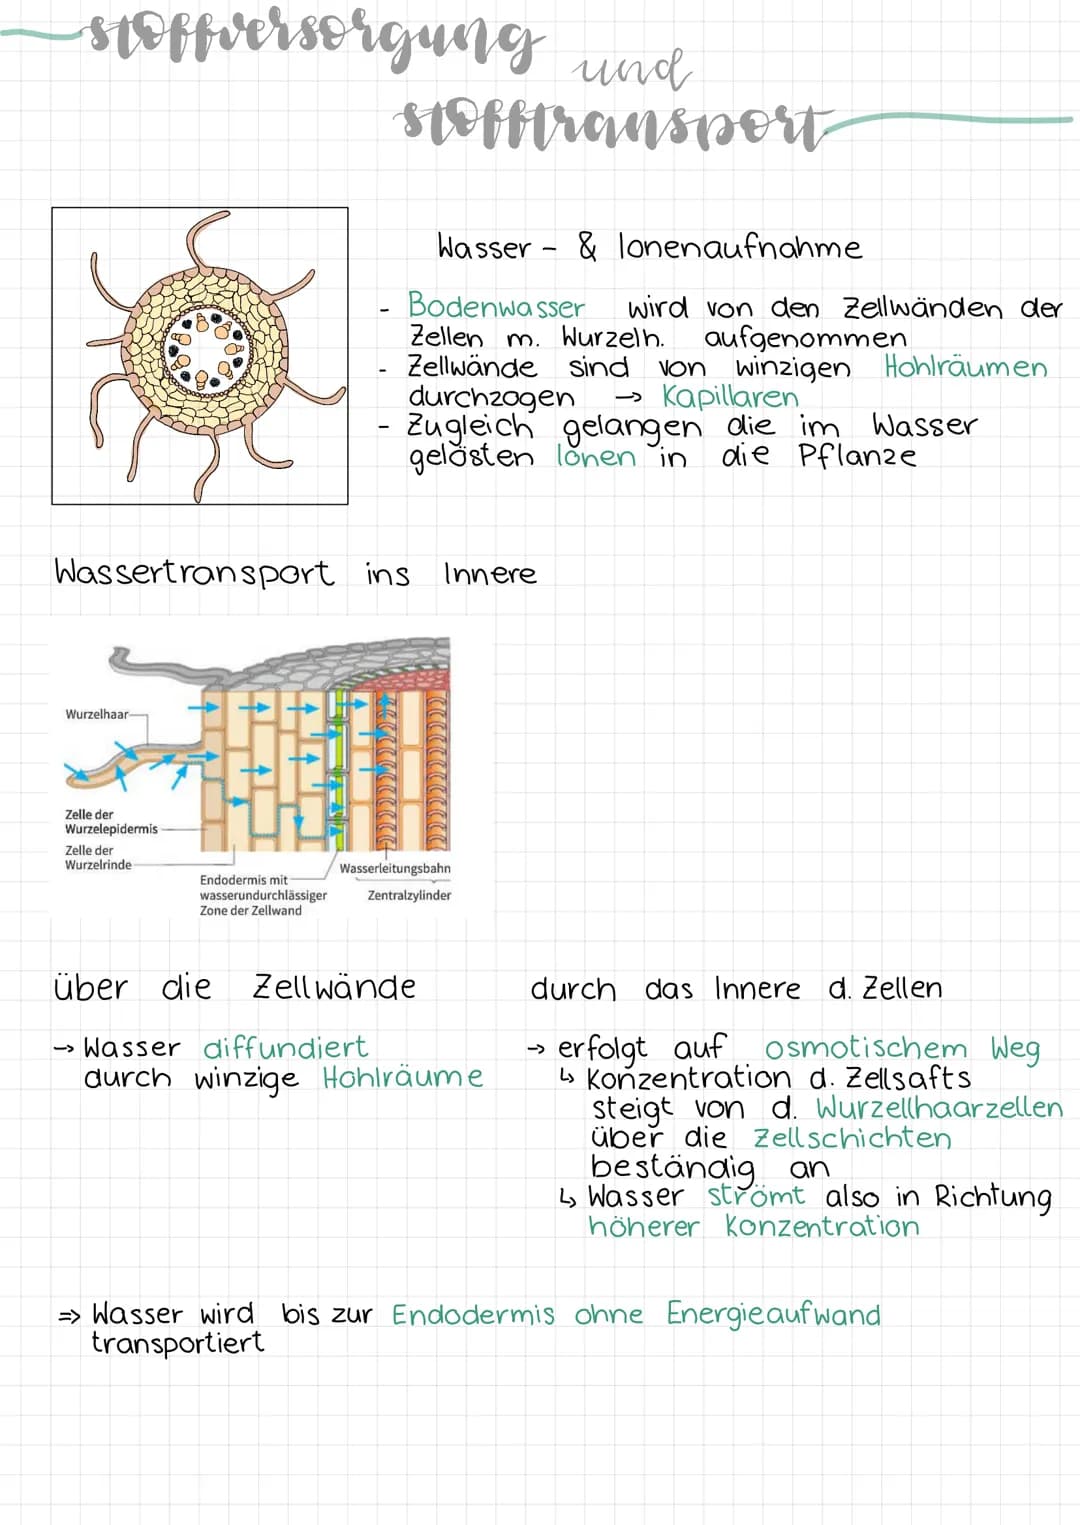 stoffversorgung
und
stofftransport
Wasser - & Ionenaufnahme
- Bodenwasser wird von den Zellwänden der
Zellen m. Wurzelh. aufgenommen
- Zellwände sind von winzigen Hohlräumen
durchzogen → Kapillaren
- Zugleich gelangen die im Wasser
gelösten Ionen in die Pflanze
Wassertransport ins Innere
Wurzelhaar
Zelle der
Wurzelepidermis
Zelle der
Wurzelrinde
Endodermis mit
wasserundurchlässiger
Zone der Zellwand
Wasserleitungsbahn
Zentralzylinder
über die Zellwände
→ Wasser diffundiert
durch winzige Hohlräume
durch das Innere d. Zellen
→ erfolgt auf osmotischem Weg
↳ Konzentration d. Zellsafts
steigt von d. Wurzellhaarzellen
über die Zellschichten
beständig an
↳ Wasser strömt also in Richtung
höherer Konzentration
⇒ Wasser wird bis zur Endodermis ohne Energieaufwand
transportiert